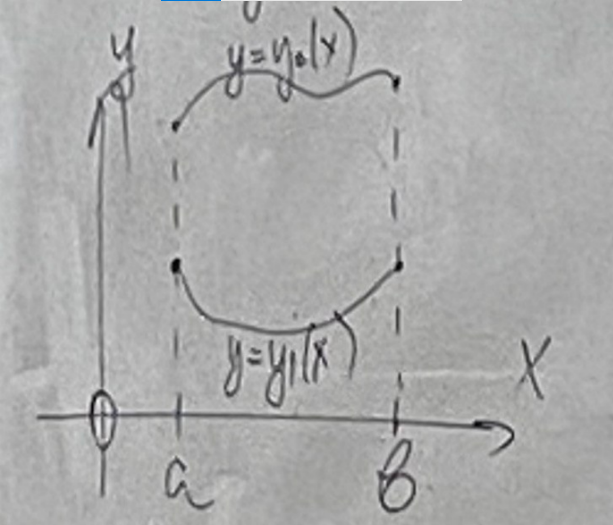 y
y=y₀(x)
y=y₁(x)
X
0
a
b